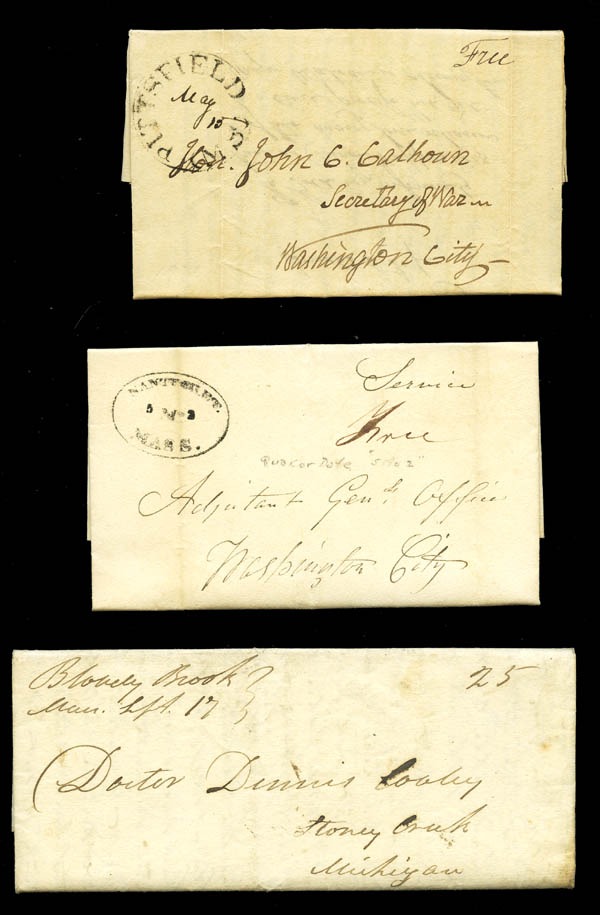 Free
PITTSFIELD MS
May
15
Hon. John C. Calhoun
Secretary of War
Washington City
NANTUCKET.
MASS.
Service
Free
Quaker Date "5 Mo 2"
Adjutant Genls Office
Washington City
Bloody Brook
Mass. Sept. 17
25
Doctor Dennis Cooley
Stoney Creek
Michigan